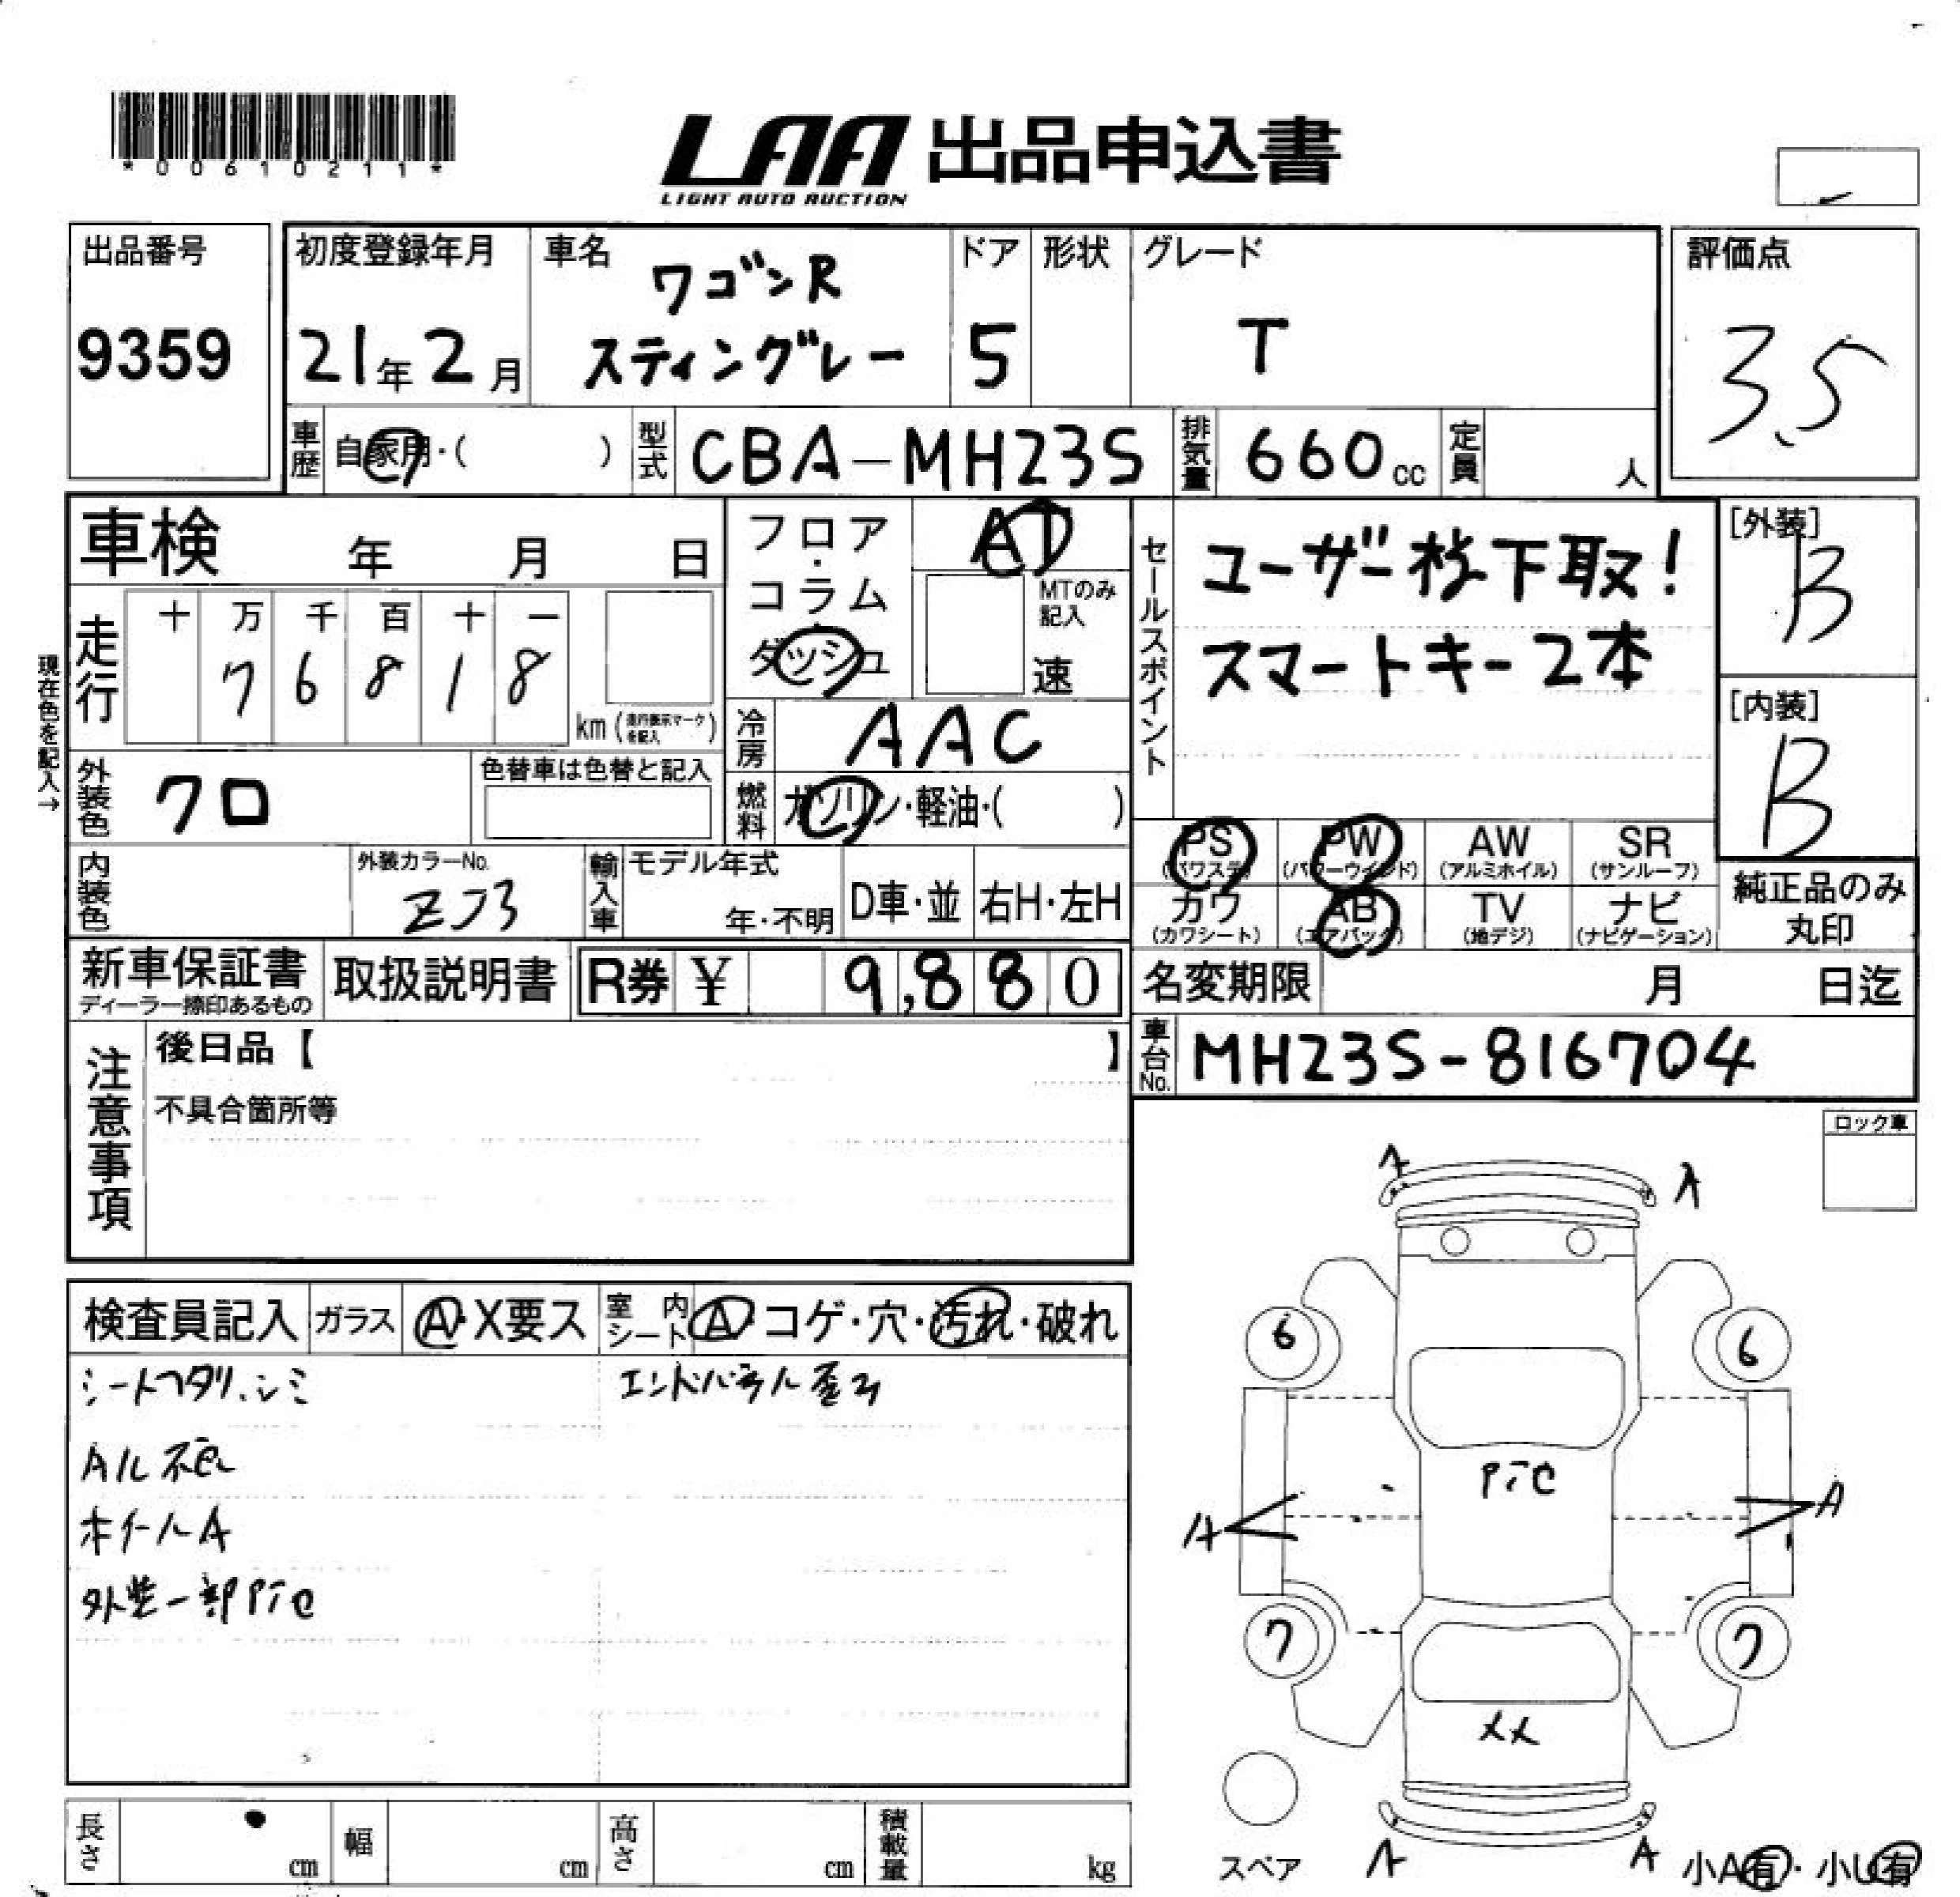 *00610211*
LAA 出品申込書
LIGHT AUTO AUCTION
出品番号
9359
初度登録年月
21年2月
車名
ワゴンR
スティングレー
ドア
5
形状
グレード
T
評価点
3.5
車歴
自家用・( )
型式
CBA-MH23S
排気量
660cc
定員
人
車検 年 月 日
フロア・コラム・ダッシュ
AT
MTのみ記入
速
セールスポイント
ユーザー様下取!
スマートキー2本
[外装]
B
[内装]
B
現在色を記入→
走行
十 万 千 百 十 一
7 6 8 1 8
km(走行表示マークを記入)
冷房
AAC
外装色
クロ
色替車は色替と記入
燃料
ガソリン・軽油・( )
PS AW SR
PW
(パワステ) (パワーウインド) (アルミホイル) (サンルーフ)
カワ AB TV ナビ
(カワシート) (エアバック) (地デジ) (ナビゲーション)
純正品のみ
丸印
内装色
外装カラーNo.
ZJ3
輸入車
モデル年式
年・不明
D車・並
右H・左H
新車保証書
ディーラー捺印あるもの
取扱説明書
R券 ¥ 9,880
名変期限 月 日迄
注意事項
後日品【 】
不具合箇所等
車台No.
MH23S-816704
ロック車
検査員記入
ガラス
A・X要ス
室内シート
A・コゲ・穴・汚れ・破れ
シートヘタリ、シミ
エンドパネル歪み
ホイールA
外装一部
A A
6 6
A A
7 7
XX
A A
スペア
小A有・小U有
長さ cm
幅 cm
高さ cm
積載量 kg